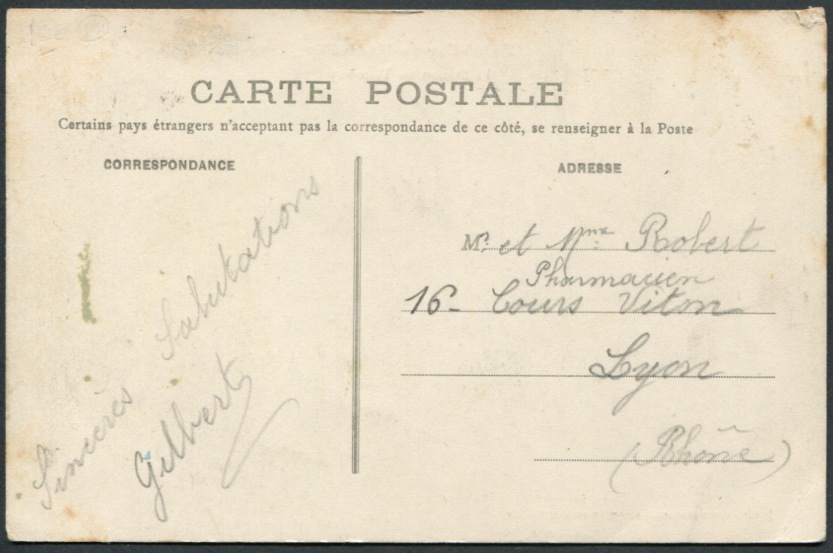 CARTE POSTALE
Certains pays étrangers n'acceptant pas la correspondance de ce côté, se renseigner à la Poste
CORRESPONDANCE
Sincères Salutations
Gilbert
ADRESSE
Mr. et Mme Robert
Pharmacien
16- Cours Vitton
Lyon
(Rhône)